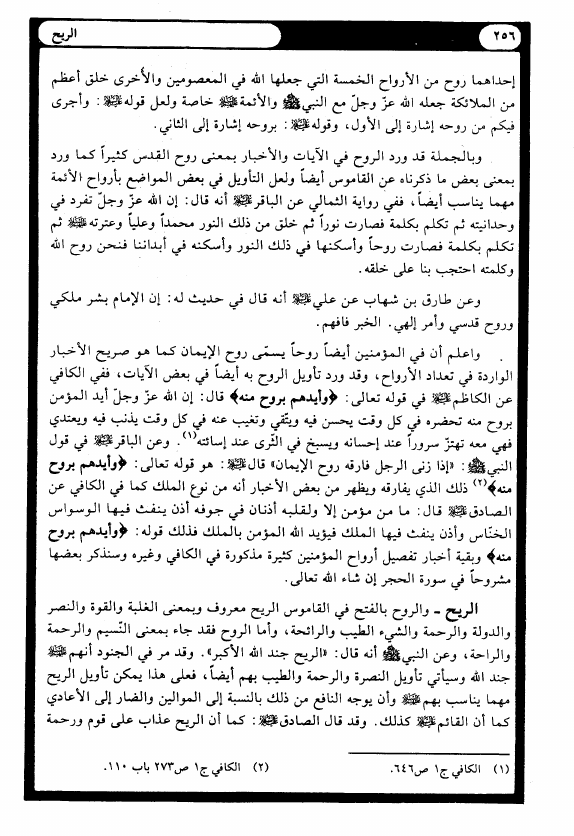 ٢٥٦
الريح
إحداهما روح من الأرواح الخمسة التي جعلها الله في المعصومين والأُخرى خلق أعظم
من الملائكة جعله الله عزّ وجلّ مع النبي ﷺ والأئمة عليهم السلام خاصة ولعل قوله عليه السلام: وأجرى
فيكم من روحه إشارة إلى الأول، وقوله عليه السلام: بروحه إشارة إلى الثاني.
وبالجملة قد ورد الروح في الآيات والأخبار بمعنى روح القدس كثيراً كما ورد
بمعنى بعض ما ذكرناه عن القاموس أيضاً ولعل التأويل في بعض المواضع بأرواح الأئمة
مهما يناسب أيضاً، ففي رواية الثمالي عن الباقر عليه السلام أنه قال: إن الله عزّ وجلّ تفرد في
وحدانيته ثم تكلم بكلمة فصارت نوراً ثم خلق من ذلك النور محمداً وعلياً وعترته عليهم السلام ثم
تكلم بكلمة فصارت روحاً وأسكنها في ذلك النور وأسكنه في أبداننا فنحن روح الله
وكلمته احتجب بنا على خلقه.
وعن طارق بن شهاب عن علي عليه السلام أنه قال في حديث له: إن الإمام بشر ملكي
وروح قدسي وأمر إلهي. الخبر فافهم.
واعلم أن في المؤمنين أيضاً روحاً يسمّى روح الإيمان كما هو صريح الأخبار
الواردة في تعداد الأرواح، وقد ورد تأويل الروح به أيضاً في بعض الآيات، ففي الكافي
عن الكاظم عليه السلام في قوله تعالى: ﴿وأيدهم بروح منه﴾ قال: إن الله عزّ وجلّ أيد المؤمن
بروح منه تحضره في كل وقت يحسن فيه ويتّقي وتغيب عنه في كل وقت يذنب فيه ويعتدي
فهي معه تهتزّ سروراً عند إحسانه ويسبخ في الثّرى عند إسائته(١). وعن الباقر عليه السلام في قول
النبي ﷺ: «إذا زنى الرجل فارقه روح الإيمان» قال عليه السلام: هو قوله تعالى: ﴿وأيدهم بروح
منه﴾(٢) ذلك الذي يفارقه ويظهر من بعض الأخبار أنه من نوع الملك كما في الكافي عن
الصادق عليه السلام قال: ما من مؤمن إلا ولقلبه أذنان في جوفه أذن ينفث فيها الوسواس
الخنّاس وأذن ينفث فيها الملك فيؤيد الله المؤمن بالملك فذلك قوله: ﴿وأيدهم بروح
منه﴾ وبقية أخبار تفصيل أرواح المؤمنين كثيرة مذكورة في الكافي وغيره وسنذكر بعضها
مشروحاً في سورة الحجر إن شاء الله تعالى.
الريح ـ والروح بالفتح في القاموس الريح معروف وبمعنى الغلبة والقوة والنصر
والدولة والرحمة والشيء الطيب والرائحة، وأما الروح فقد جاء بمعنى النّسيم والرحمة
والراحة، وعن النبي ﷺ أنه قال: «الريح جند الله الأكبر». وقد مر في الجنود أنهم عليهم السلام
جند الله وسيأتي تأويل النصرة والرحمة والطيب بهم أيضاً، فعلى هذا يمكن تأويل الريح
مهما يناسب بهم عليهم السلام وأن يوجه النافع من ذلك بالنسبة إلى الموالين والضار إلى الأعادي
كما أن القائم عليه السلام كذلك. وقد قال الصادق عليه السلام: كما أن الريح عذاب على قوم ورحمة
(١) الكافي ج١ ص٦٤٦.
(٢) الكافي ج١ ص٢٧٣ باب ١١٠.